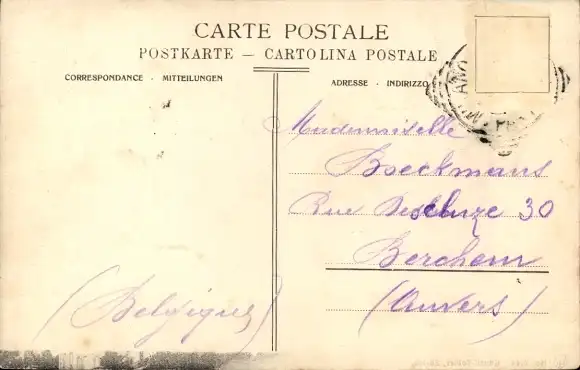 CARTE POSTALE
POSTKARTE — CARTOLINA POSTALE
CORRESPONDANCE - MITTEILUNGEN
ADRESSE - INDIRIZZO
Mademoiselle
Boeckmans
Rue 30
Berchem
(Anvers)
(Belgique)